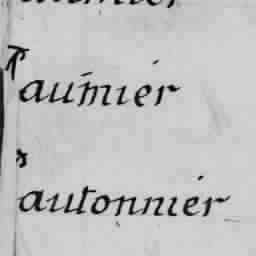 aumier
autonnier